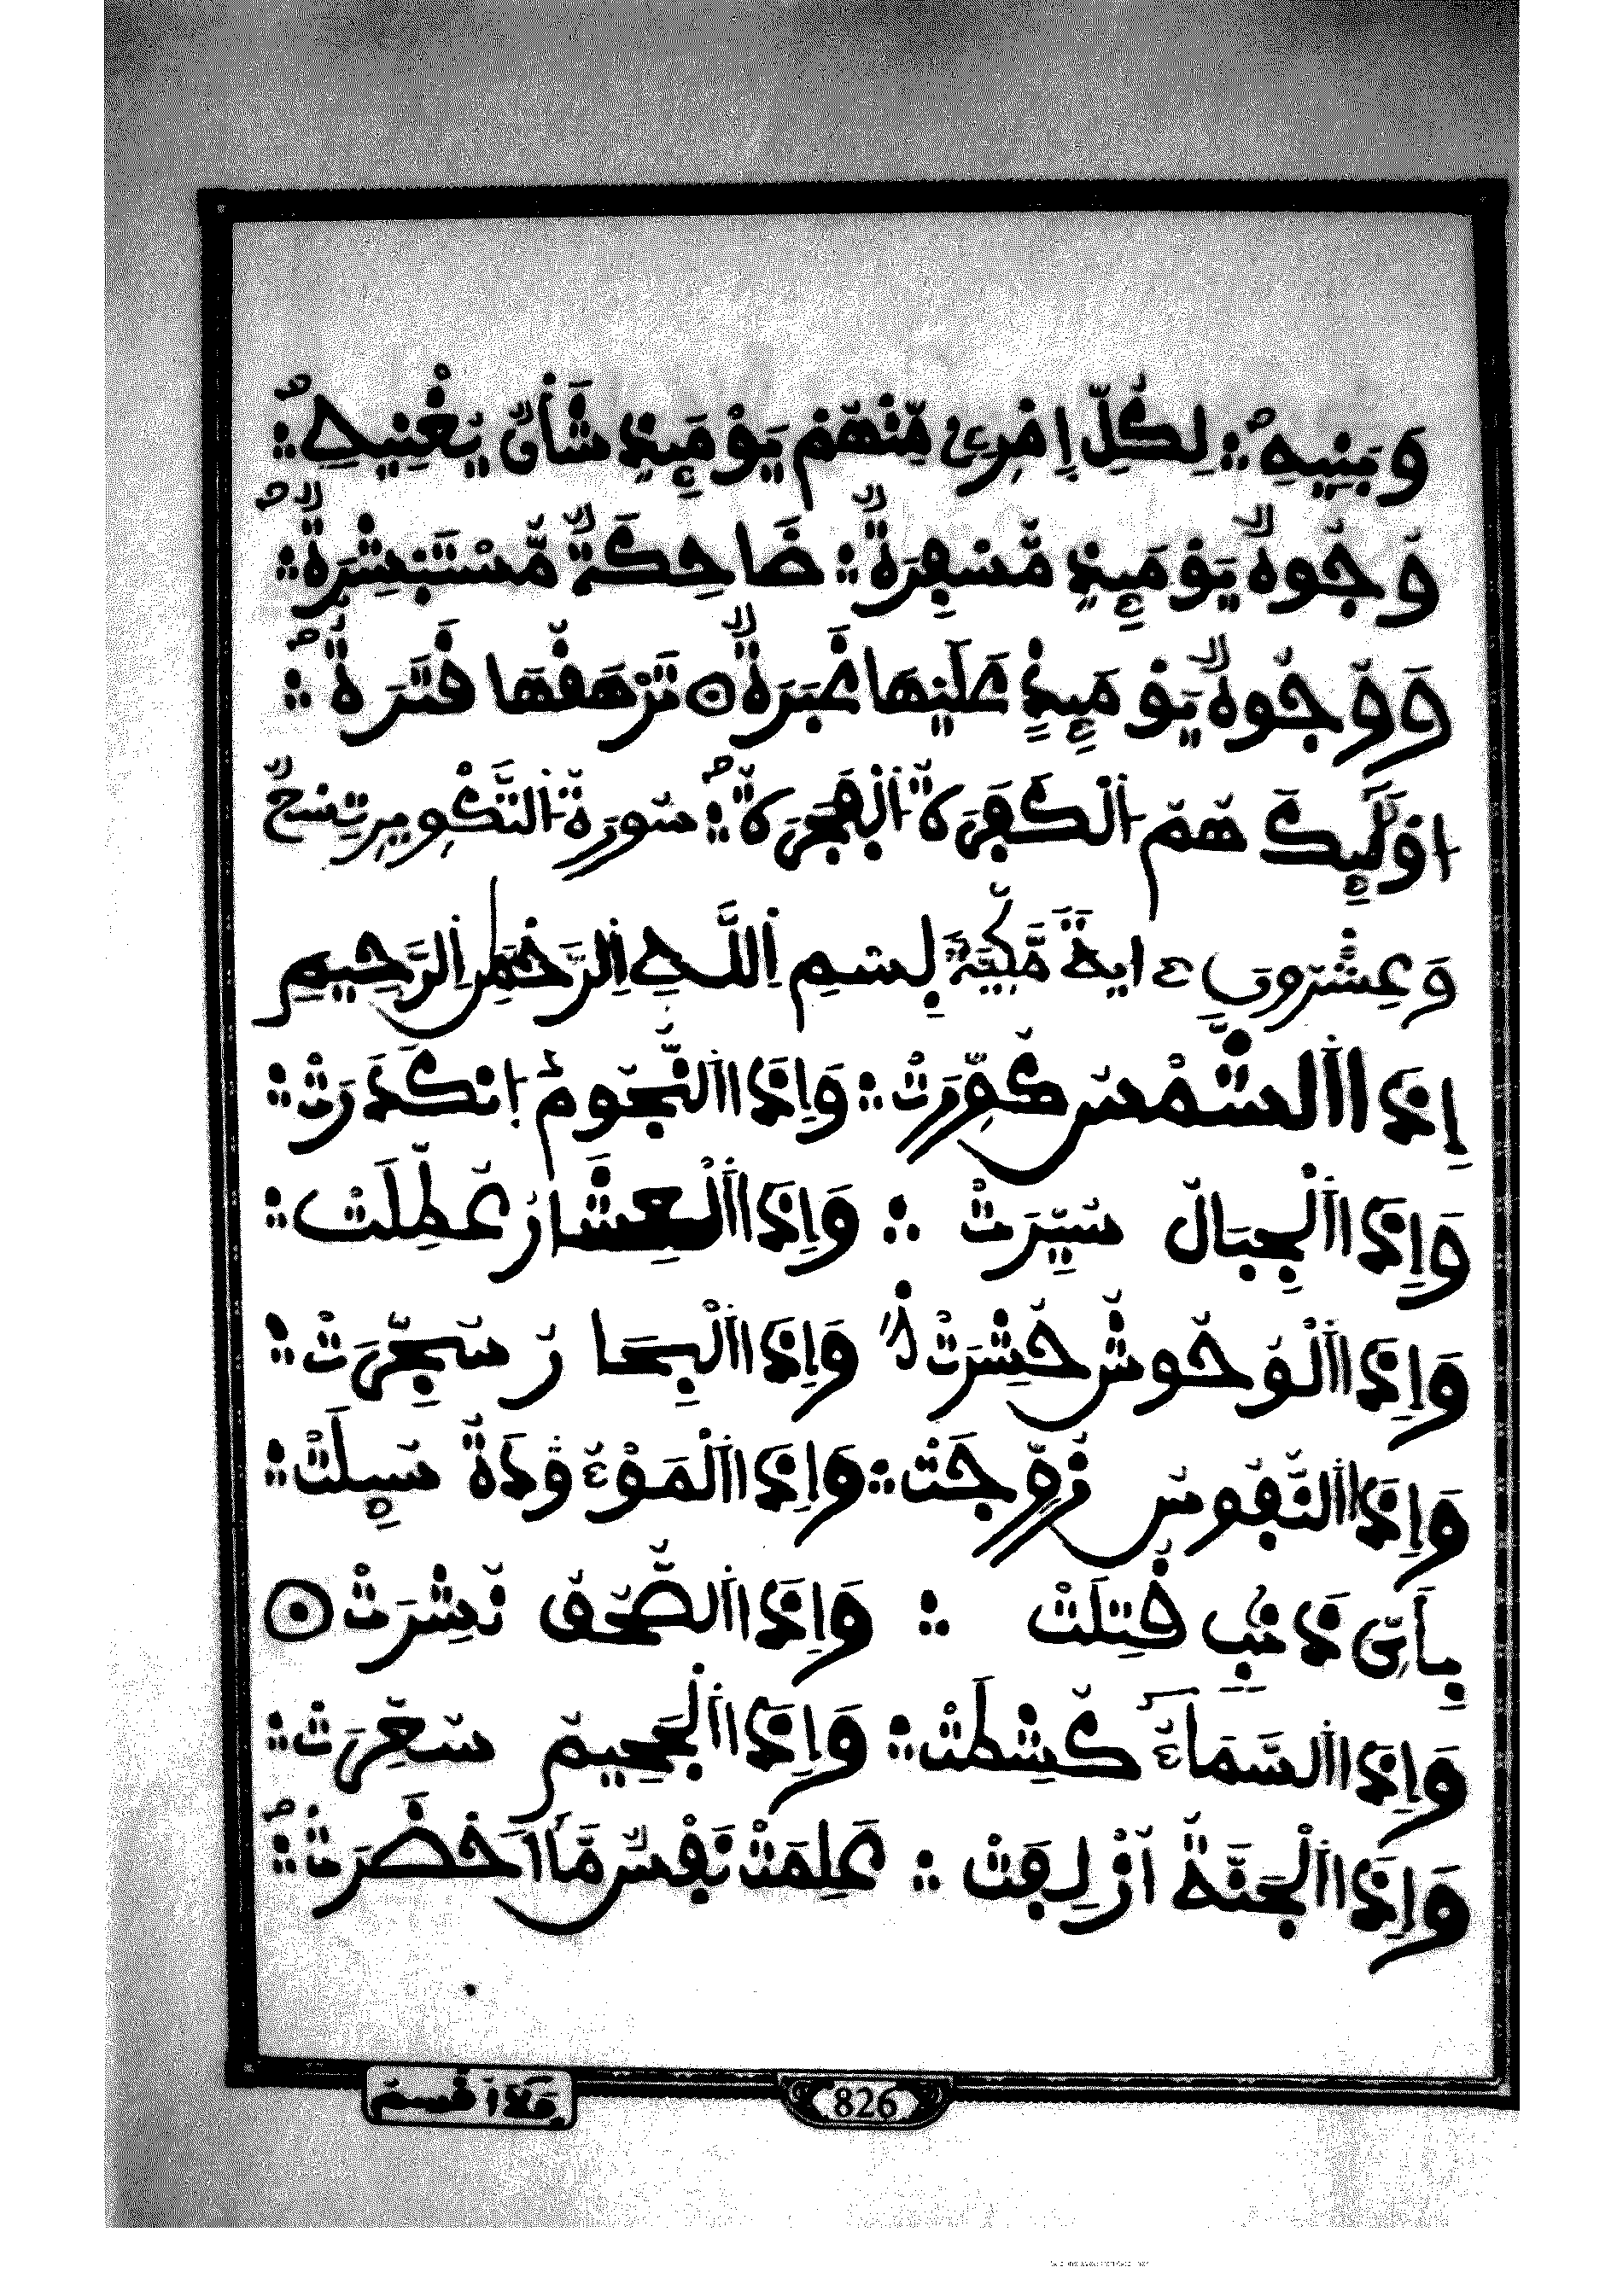 وَبَنِيهِ لِكُلِّ اِمْرِئٍ مِّنْهُمْ يَوْمَئِذٍ شَأْنٌ يُغْنِيهِ
وُجُوهٌ يَوْمَئِذٍ مُّسْفِرَةٌ ضَاحِكَةٌ مُّسْتَبْشِرَةٌ
وَوُجُوهٌ يَوْمَئِذٍ عَلَيْهَا غَبَرَةٌ تَرْهَقُهَا قَتَرَةٌ
اُوْلَٰٓئِكَ هُمُ اُلْكَفَرَةُ اُلْفَجَرَةُ سُورَةُ اُلتَّكْوِيرِ تِسْعٌ
وَعِشْرُونَ ءَايَةً مَّكِّيَّةٌ بِسْمِ اِللَّهِ اِلرَّحْمَٰنِ اِلرَّحِيمِ
إِذَا اَلشَّمْسُ كُوِّرَتْ وَإِذَا اَلنُّجُومُ اُنكَدَرَتْ
وَإِذَا اَلْجِبَالُ سُيِّرَتْ وَإِذَا اَلْعِشَارُ عُطِّلَتْ
وَإِذَا اَلْوُحُوشُ حُشِرَتْ وَإِذَا اَلْبِحَارُ سُجِّرَتْ
وَإِذَا اَلنُّفُوسُ زُوِّجَتْ وَإِذَا اَلْمَوْءُۥدَةُ سُئِلَتْ
بِأَيِّ ذَنۢبٍ قُتِلَتْ وَإِذَا اَلصُّحُفُ نُشِرَتْ
وَإِذَا اَلسَّمَآءُ كُشِطَتْ وَإِذَا اَلْجَحِيمُ سُعِّرَتْ
وَإِذَا اَلْجَنَّةُ أُزْلِفَتْ عَلِمَتْ نَفْسٌ مَّآ أَحْضَرَتْ
فَلَآ أُقْسِمُ
826